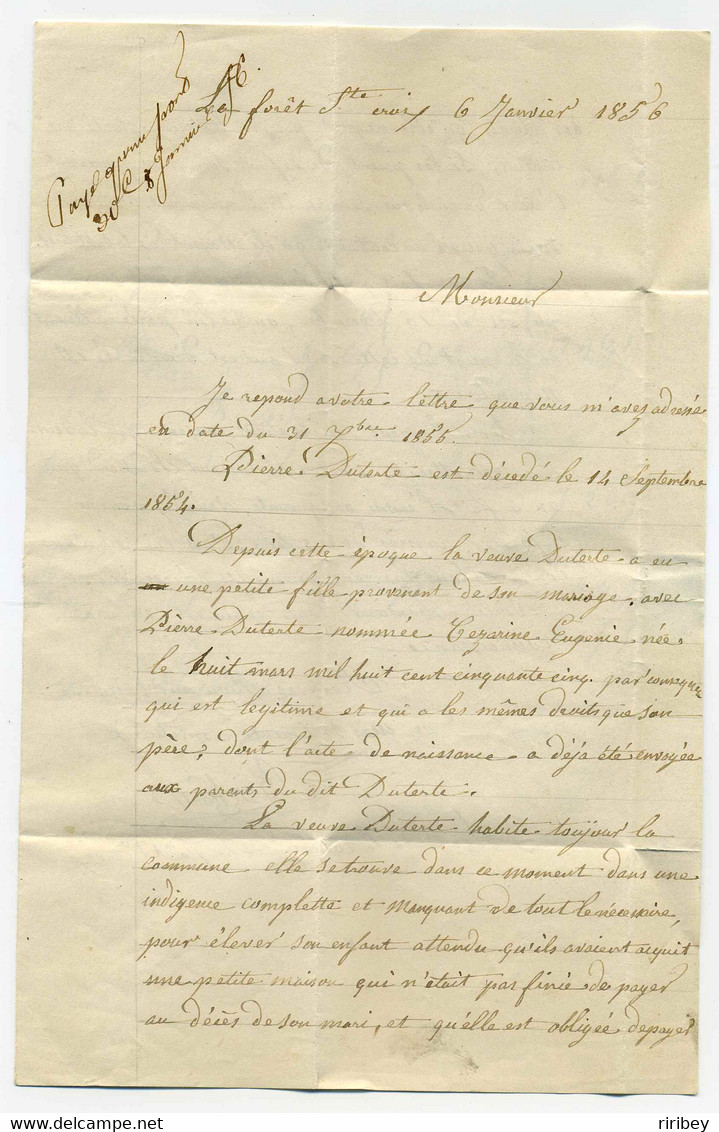 La forêt Ste croix 6 Janvier 1856
Payé
30 C 8 Janvier
Monsieur
Je repond avotre lettre que vous m'avez adressée
en date du 31 7bre 1855.
Pierre Duterte est décédé le 14 Septembre
1854.
Depuis cette époque la veuve Duterte a eu
une petite fille provenent de son mariage avec
Pierre Duterte nommée Cezarine Eugenie née
le huit mars mil huit cent cinquante cinq. par conséquent
qui est legitime et qui a les mêmes droits que son
père, dont l'acte de naissance a déjà été envoyée
aux parents du dit Duterte.
La veuve Duterte habite toujour la
commune elle se trouve dans ce moment dans une
indigence complette et manquant de tout le nécenaire,
pour élever son enfant attendu qu'ils avaient acquit
une petite maison qui n'était pas finie de payer
au décès de son mari, et qu'elle est obligée depayer
riribey